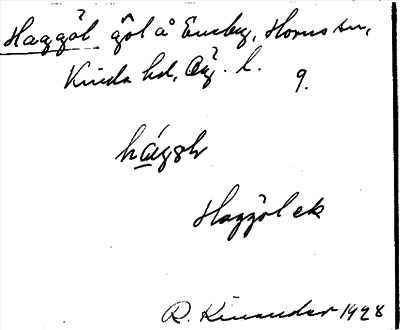 Haggöl göl å Emeby, Horns sn,
Kinda hd, Ög. l.
9.
hágøl
Haggöl ek
R. Kinander 1928